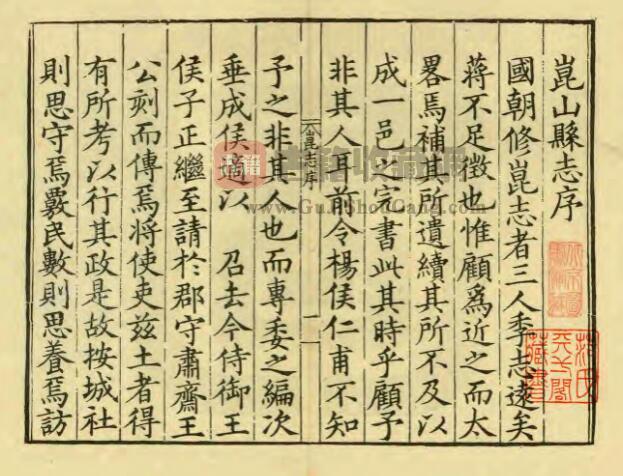 崑山縣志序
國朝修崑志者三人季志遠矣
蔣不足徵也惟顧爲近之而太
畧焉補其所遺續其所不及以
成一邑之完書此其時乎顧予
非其人耳前令楊侯仁甫不知
崑志序
一
予之非其人也而專委之編次
垂成侯適以 召去今侍御王
侯子正繼至請於郡守肅齋王
公刻而傳焉將使吏兹土者得
有所考以行其政是故按城社
則思守焉覈民數則思養焉訪
范氏天一閣藏書
www.GuJiShouCang.com